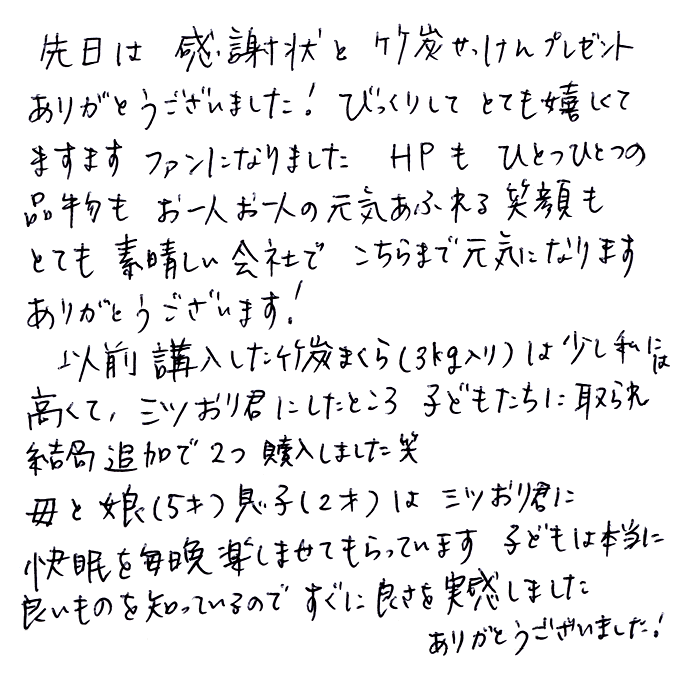 先日は 感謝状と 竹炭せっけんプレゼント
ありがとうございました! びっくりして とても嬉しくて
ますます ファンになりました HPも ひとつひとつの
品物も お一人お一人の元気あふれる笑顔も
とても 素晴しい会社で こちらまで元気になります
ありがとうございます!
以前 講入した竹炭まくら(3kg入り)は少し私には
高くて, 三ツおり君にしたところ 子どもたちに取られ
結局 追加で 2つ 購入しました笑
母と娘(5才)息子(2才)は 三ツおり君に
快眠を毎晩楽しませてもらっています 子どもは本当に
良いものを知っているので すぐに良さを実感しました
ありがとうございました!